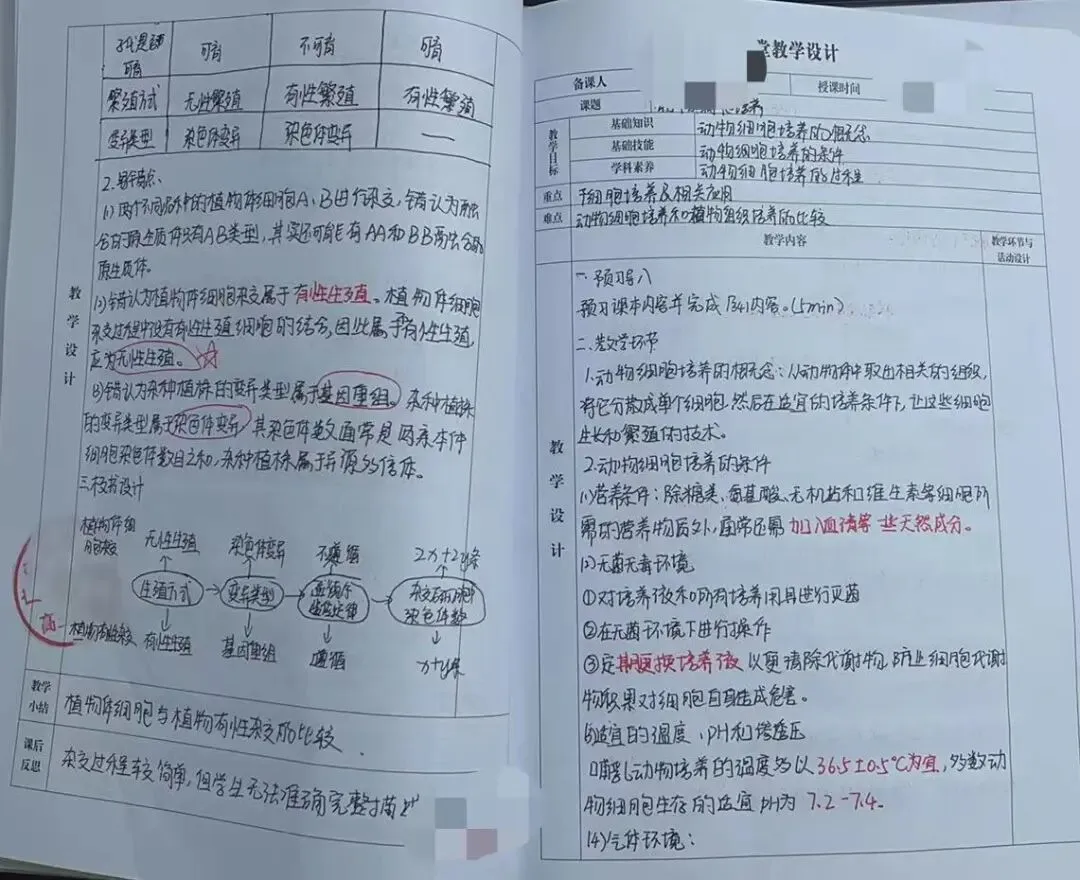 可育 可育 不可育 可育
繁殖方式 无性繁殖 有性繁殖 有性繁殖
变异类型 染色体变异 染色体变异 —
教学设计
2.易错点
(1)两个不同品种的植物体细胞A、B进行杂交,错认为融
合的原生质体只有AB类型,其实还可能有AA和BB两融合的
原生质体。
(2)错认为植物体细胞杂交属于有性生殖。植物体细胞
杂交过程中没有有性生殖细胞的结合,因此属于有性生殖,
应为无性生殖。
(3)错认为杂种植株的变异类型属于基因重组。杂种植株
的变异类型属于染色体变异 其染色体数通常是两亲本体
细胞染色体数目之和,杂种植株属于异源多倍体。
三.板书设计
植物体细胞杂交 无性生殖 染色体变异 不遵循 2x+2y条
生殖方式 变异类型 孟德尔遗传定律 染色体数
植物有性杂交 有性生殖 基因重组 遵循 x+y条
教学小结
植物体细胞与植物有性杂交的比较
课后反思
杂交过程较简单,但学生无法准确完整描述
堂教学设计
备课人 授课时间
课题
教学目标
基础知识 动物细胞培养的概念
基础技能 动物细胞培养的条件
学科素养 动物细胞培养的过程
重点 干细胞培养及相关应用
难点 动物细胞培养和植物组织培养的比较
教学内容 教学环节与活动设计
教学设计
一.预习导入
预习课本内容并完成P341内容。(5min)
二、教学环节
1.动物细胞培养的概念:从动物体中取出相关的组织,
将它分散成单个细胞 然后在适宜的培养条件下,让这些细胞
生长和繁殖的技术。
2.动物细胞培养的条件
(1)营养条件:除糖类、氨基酸、无机盐和维生素等细胞所
需的营养物质外,通常还需加入血清等一些天然成分。
(2)无菌无毒环境
①对培养液和所有培养用具进行灭菌
②在无菌环境下进行操作
③定期更换培养液 以便清除代谢物,防止细胞代谢
物积累对细胞自身造成危害。
(3)适宜的温度、pH和渗透压
哺乳动物培养的温度多以36.5±0.5℃为宜,多数动
物细胞生存的适宜pH为7.2-7.4.
(4)气体环境: